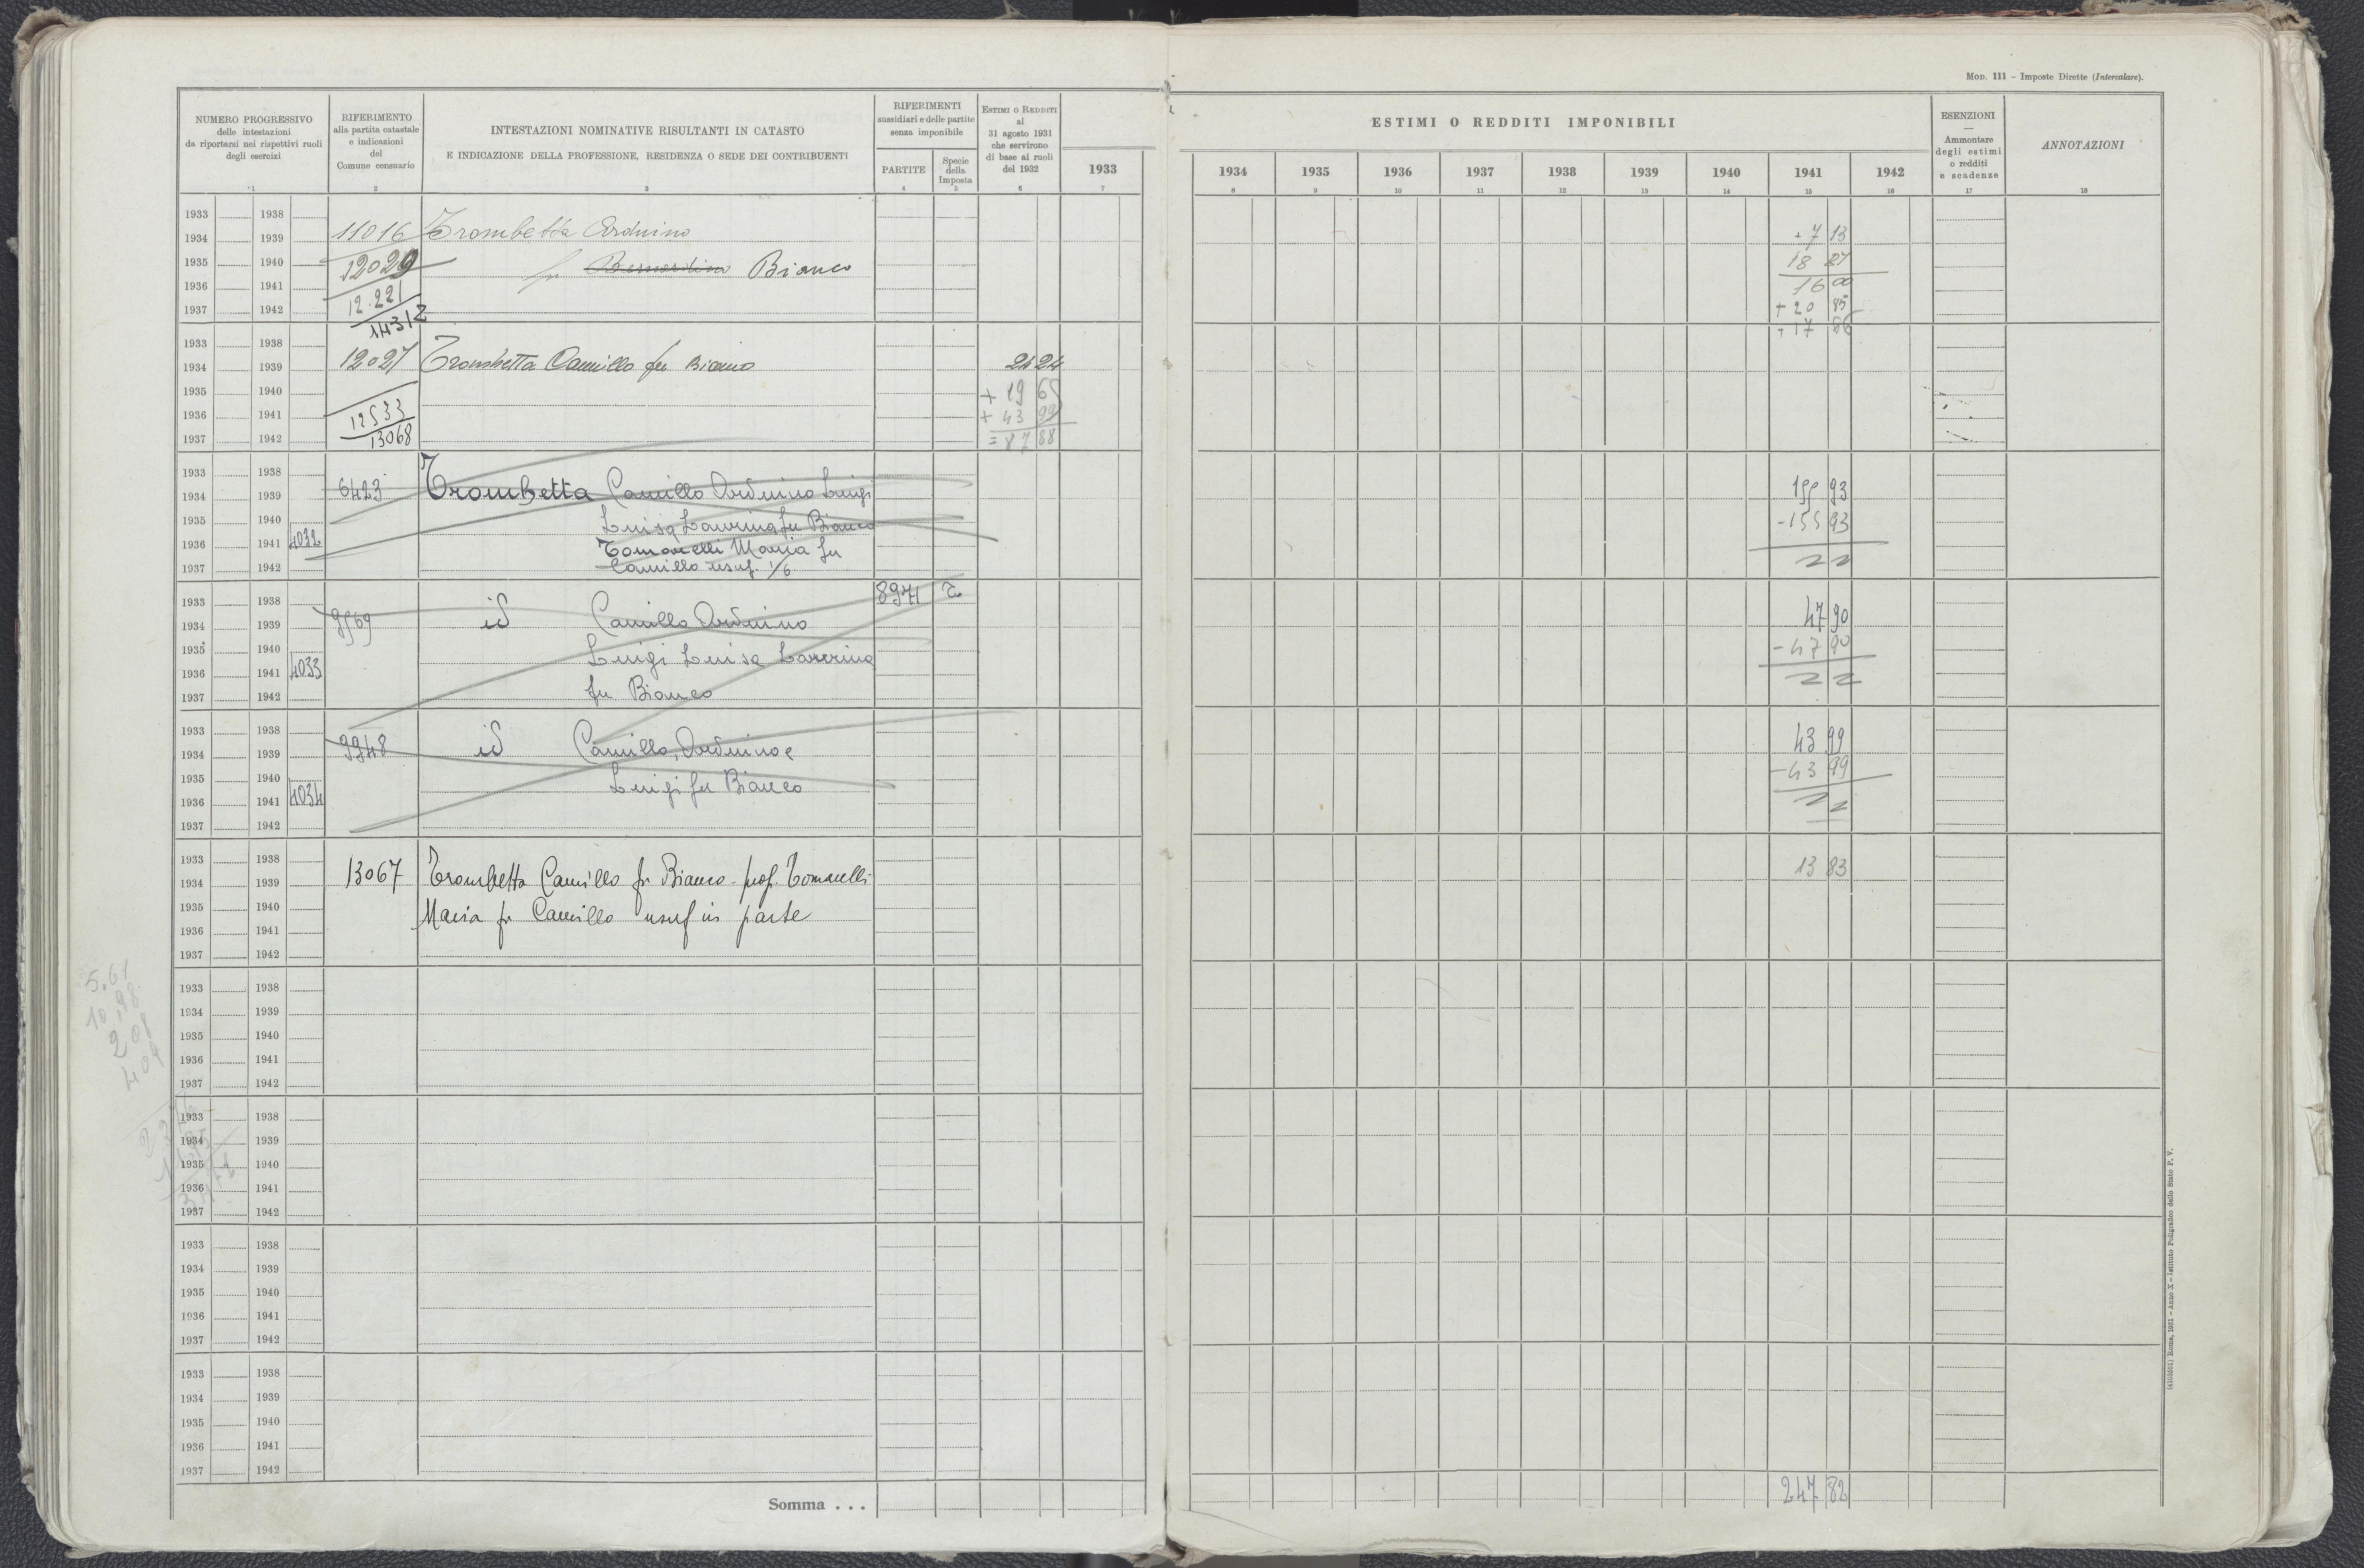 MOD. 111 – Imposte Dirette (Intercalare).
NUMERO PROGRESSIVO
delle intestazioni
da riportarsi nei rispettivi ruoli
degli esercizi
RIFERIMENTO
alla partita catastale
e indicazioni
del
Comune censuario
INTESTAZIONI NOMINATIVE RISULTANTI IN CATASTO
E INDICAZIONE DELLA PROFESSIONE, RESIDENZA O SEDE DEI CONTRIBUENTI
RIFERIMENTI
sussidiari e delle partite
senza imponibile
PARTITE
Specie
della
Imposta
ESTIMI O REDDITI
al
31 agosto 1931
che servirono
di base ai ruoli
del 1932
1933
ESTIMI O REDDITI IMPONIBILI
1934 1935 1936 1937 1938 1939 1940 1941 1942
ESENZIONI
—
Ammontare
degli estimi
o redditi
e scadenze
ANNOTAZIONI
1 2 3 4 5 6 7 8 9 10 11 12 13 14 15 16 17 18
1933 1938
1934 1939 11016 Trombetta Arduino + 7 13
1935 1940 12029 fu Bernardino Bianco 18 87
1936 1941 12.221 16 00
1937 1942 14312 + 20 85
+ 17 86
1933 1938
1934 1939 12027 Trombetta Camillo fu Bianco 24 24
1935 1940 + 19 65
1936 1941 12533 + 43 99
1937 1942 13068 = 87 88
1933 1938
1934 1939 6423 Trombetta Camillo Arduino Luigi 155 93
1935 1940 Luisa Laurina fu Bianco - 155 93
1936 1941 4032 Tomarelli Maria fu
1937 1942 Camillo usuf. 1/6
1933 1938 8971
1934 1939 9569 id Camillo Arduino 47 90
1935 1940 Luigi Luisa Laurina - 47 90
1936 1941 4033
1937 1942 fu Bianco
1933 1938
1934 1939 9948 id Camillo, Arduino e 43 99
1935 1940 Luigi fu Bianco - 43 99
1936 1941 4034
1937 1942
1933 1938
1934 1939 13067 Trombetta Camillo fu Bianco - prop. Tomarelli 13 83
1935 1940 Maria fu Camillo usuf in parte
1936 1941
1937 1942
1933 1938
1934 1939
1935 1940
1936 1941
1937 1942
5.61
10,98
2 08
4 09
1933 1938
1934 1939
1935 1940
1936 1941
1937 1942
1933 1938
1934 1939
1935 1940
1936 1941
1937 1942
1933 1938
1934 1939
1935 1940
1936 1941
1937 1942
Somma . . . 247 82
Roma, 1931 – Anno X – Istituto Poligrafico dello Stato P. V.